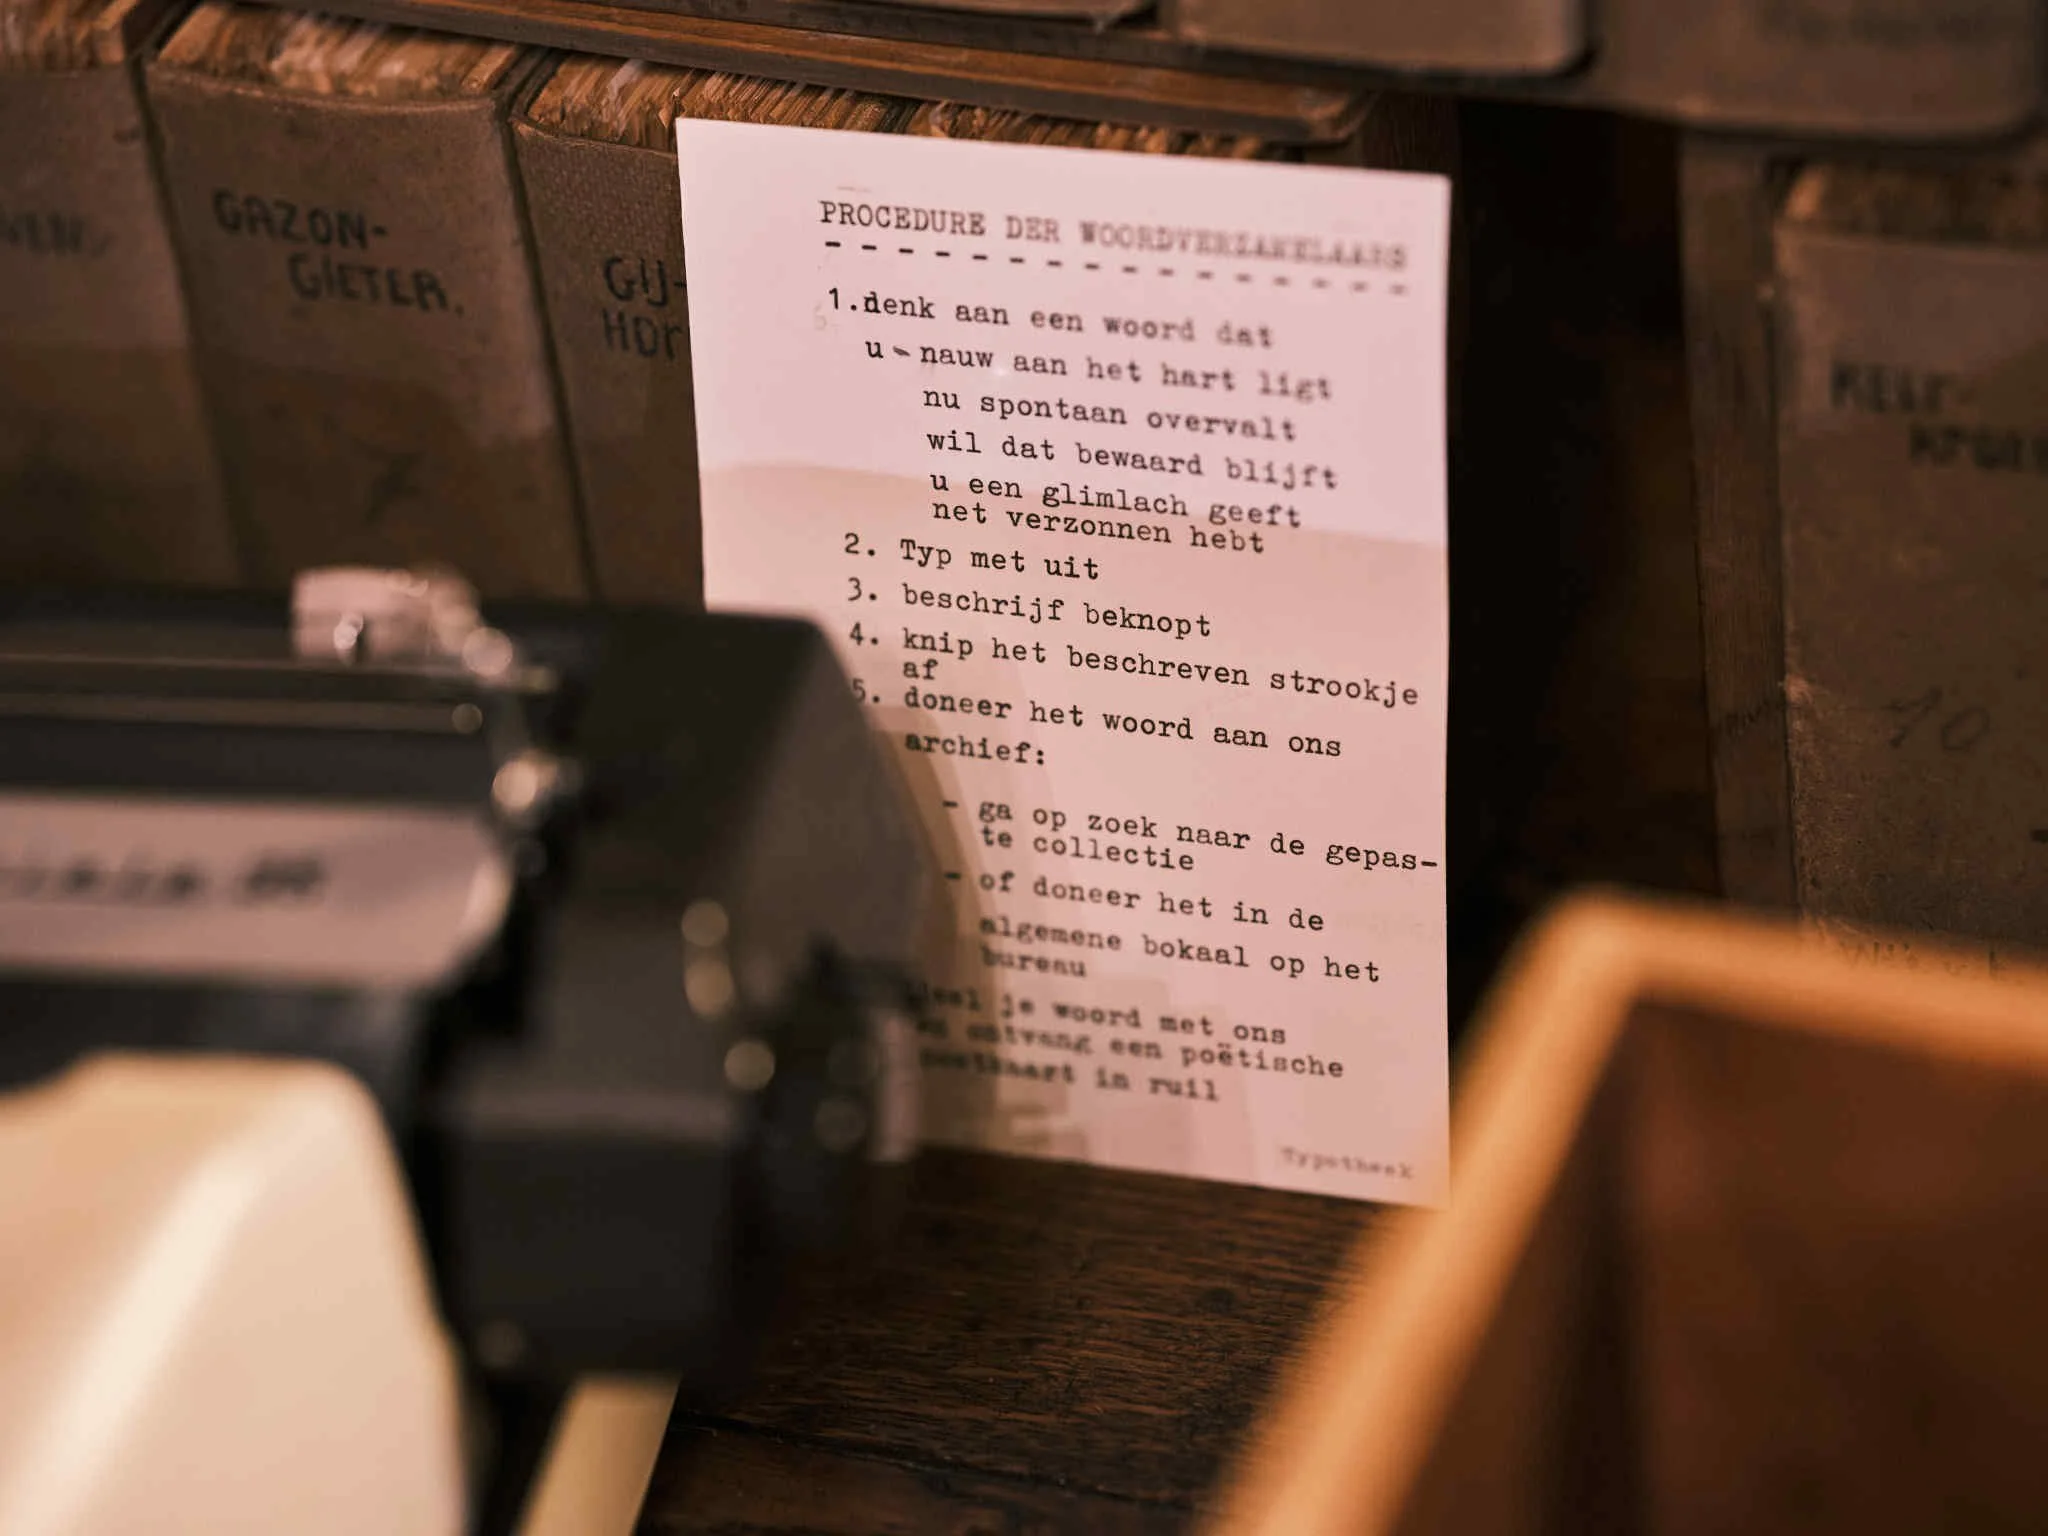 GAZON-
GIETER.
GIJ-
PROCEDURE DER WOORDVERZAMELAARS
1.denk aan een woord dat
u - nauw aan het hart ligt
nu spontaan overvalt
wil dat bewaard blijft
u een glimlach geeft
net verzonnen hebt
2. Typ met uit
3. beschrijf beknopt
4. knip het beschreven strookje
af
5. doneer het woord aan ons
archief:
- ga op zoek naar de gepas-
te collectie
- of doneer het in de
algemene bokaal op het
bureau
Deel je woord met ons
en ontvang een poëtische
postkaart in ruil
Typotheek
10